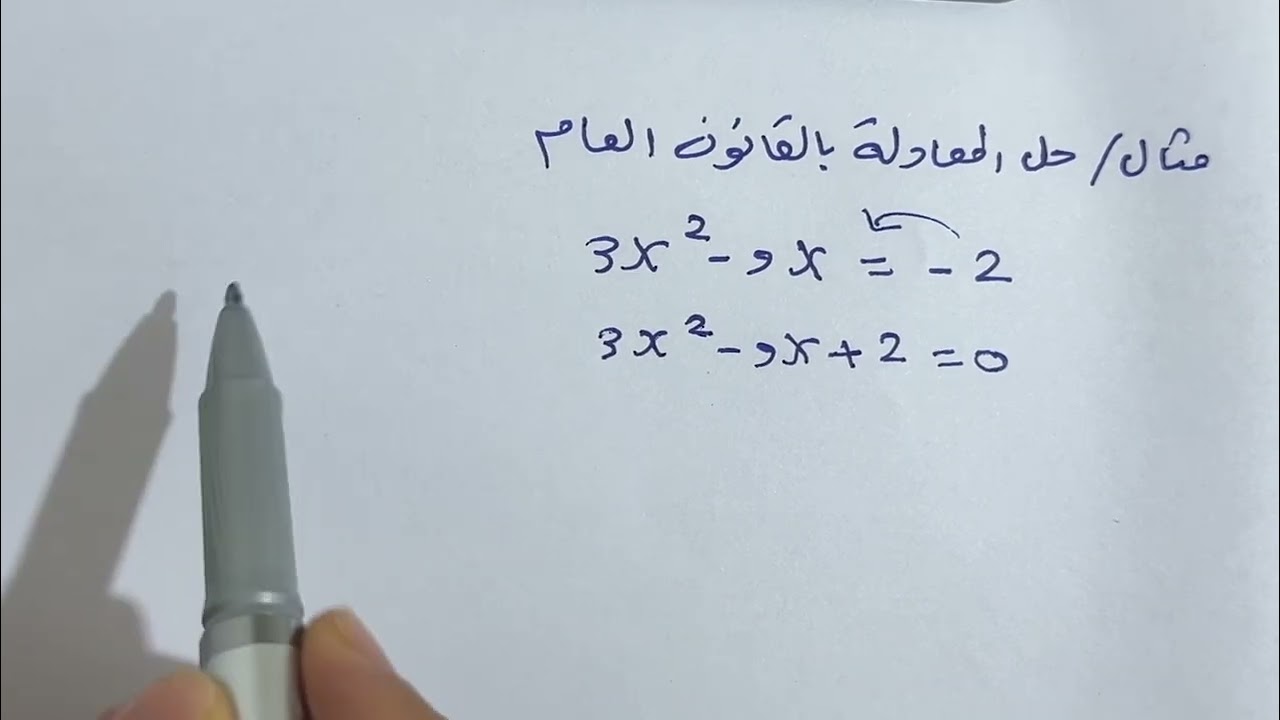 مثال/ حل المعادلة بالقانون العام
3x² - 9x = - 2
3x² - 9x + 2 = 0